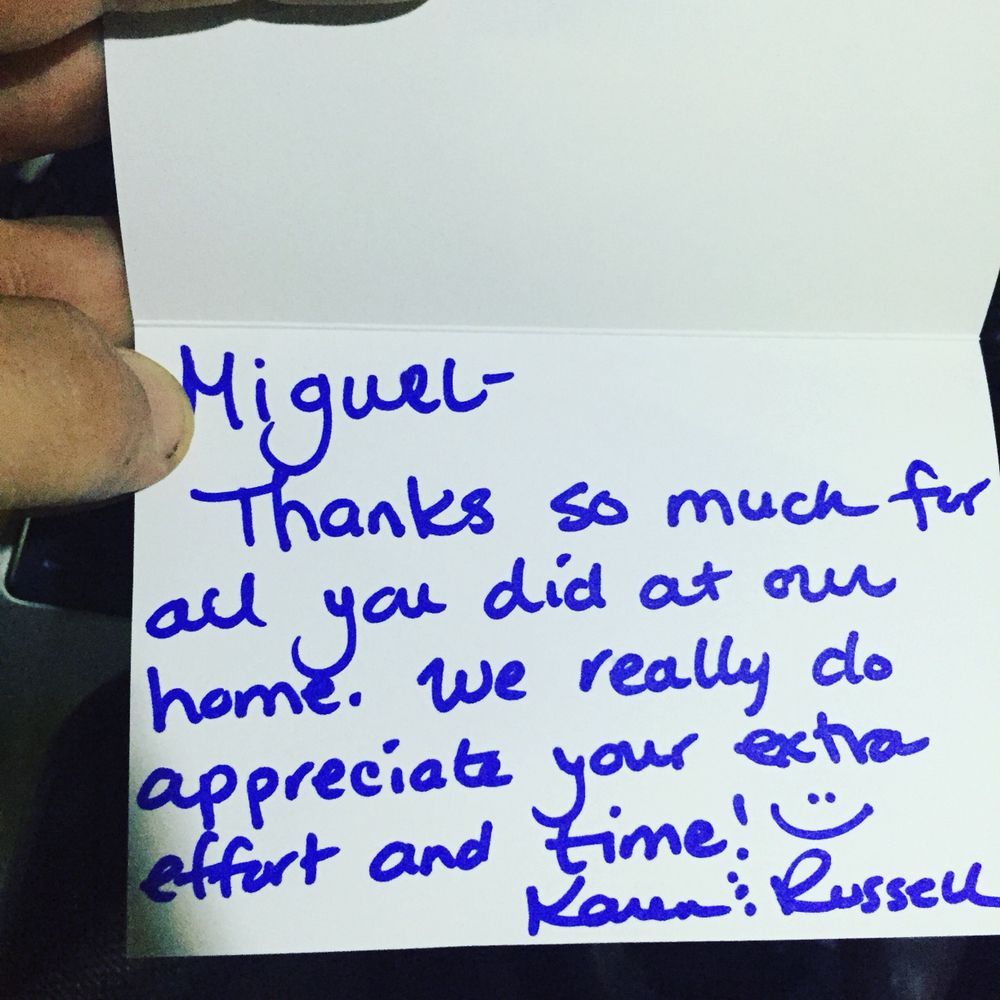 Miguel-
Thanks so much for
all you did at our
home. We really do
appreciate your extra
effort and time! :)
Karen : Russell